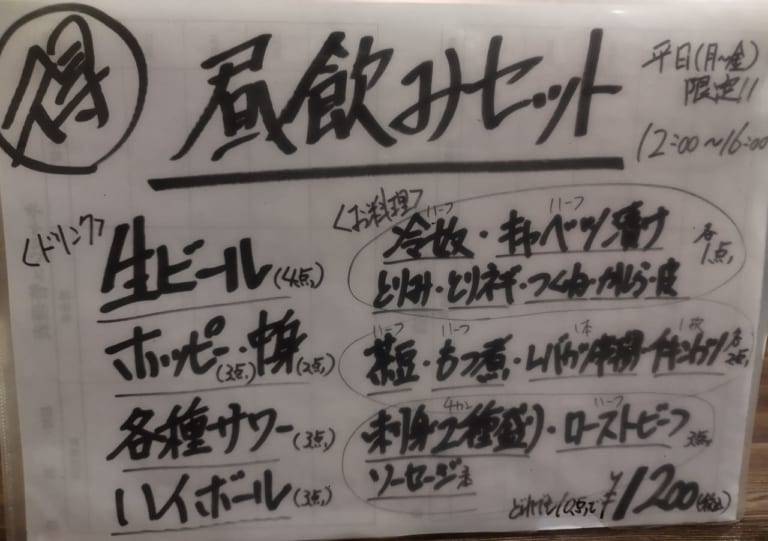 得
昼飲みセット
平日(月~金)
限定!!
12:00~16:00
<ドリンク>
生ビール(4点)
ホッピー(3点)・中身(2点)
各種サワー(3点)
ハイボール(3点)
<お料理>
ハーフ ハーフ
冷奴・キャベツ漬け 各1点
とりみ・とりネギ・つくね・かしら・皮
ハーフ ハーフ 1本 1枚
枝豆・もつ煮・レバカツ串揚・チキンカツ 各2点
4カン ハーフ
刺身(2種盛)・ローストビーフ 3点
ソーセージ
どれでも10点で ¥1200(税込)